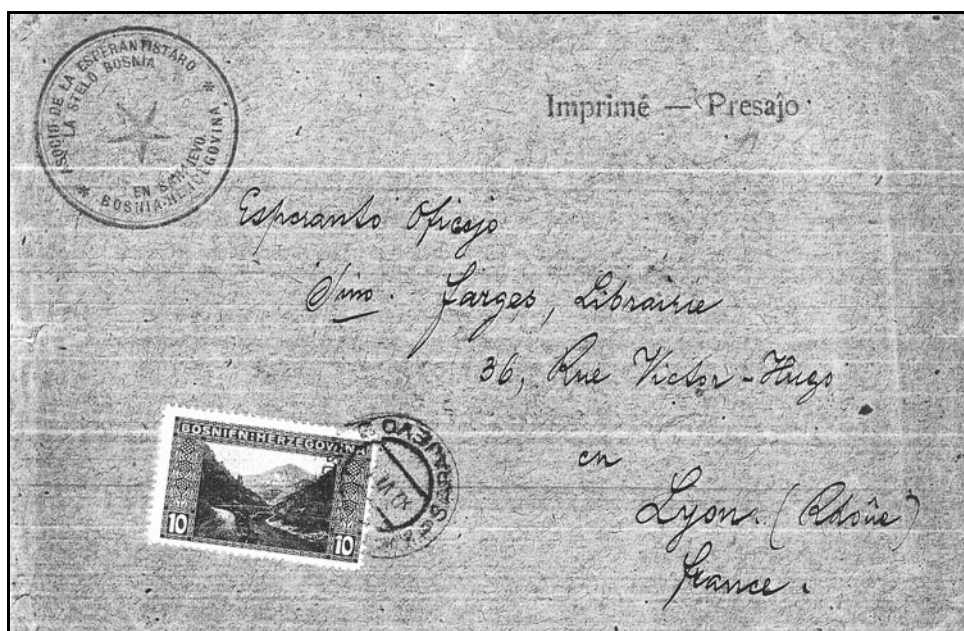 ASOCIO DE LA ESPERANTISTARO
LA STELO BOSNIA
EN SARAJEVO.
* BOSNIA-HERCEGOVINA *
Imprimé — Presaĵo
Esperanto Oficejo
Sino. Farges, Librairie
36, Rue Victor-Hugo
en
Lyon. (Rhône)
France.
BOSNIEN-HERZEGOVINA
10 10
SARAJEVO